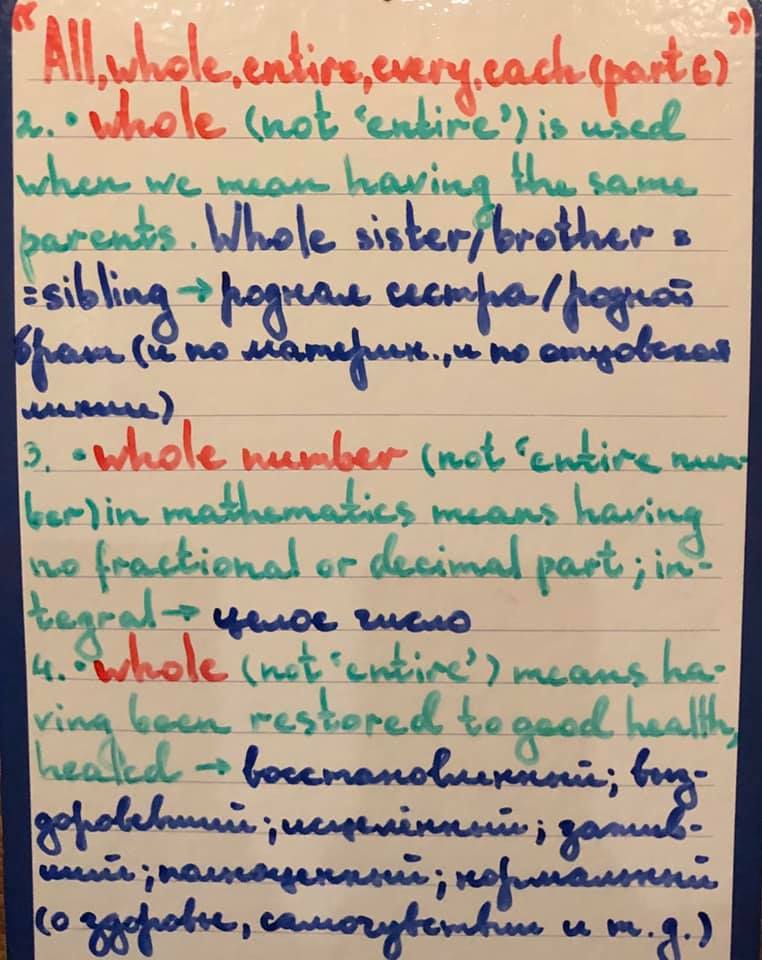 "All, whole, entire, every, each (part 6)"
2. • whole (not 'entire') is used
when we mean having the same
parents. Whole sister/brother =
=sibling → родная сестра/родной
брат (и по материн., и по отцовской
линии)
3. • whole number (not 'entire num-
ber) in mathematics means having
no fractional or decimal part; in-
tegral → целое число
4. • whole (not 'entire') means ha-
ving been restored to good health,
healed → восстановленный; выз-
доровевший; исцелённый; зажив-
ший; полноценный; нормальный
(о здоровье, самочувствии и т.д.)